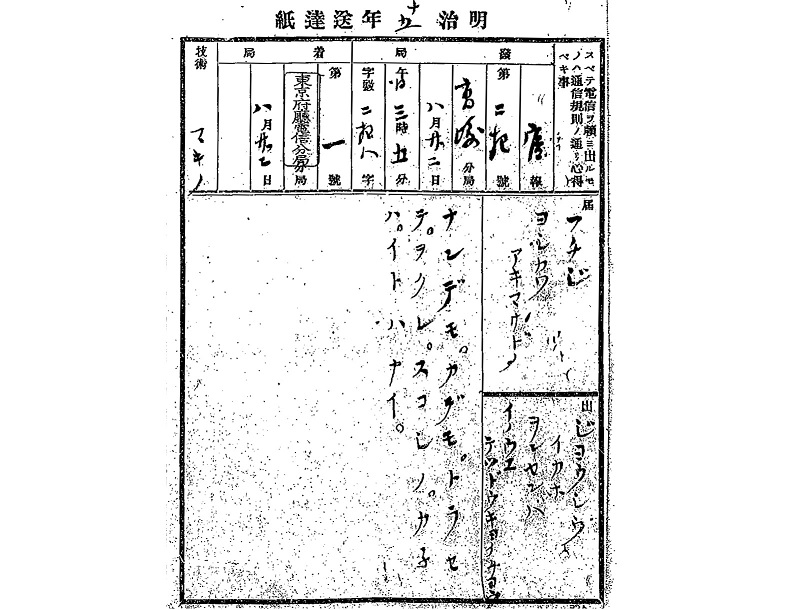 明治十五年送達紙
スベテ電信ヲ頼ミ出ルモ
ノハ通信規則ノ通リ心得
ベキ事
發局
官報
第二
號
分局
八月廿二日
午 三時五分
字數二 八字
着局
第一號
東京府廳電信分局
分局
八月廿二日
技術
マキノ
届
ヨシカワ
アキマサドノ
出
ジヨウシウ
イカホ
ヲンセンバ
イノウエ
テツドウキヨクチヨウ
ナンデモ。カデモ。トラセ
テ。ヲクレ。スコシノ。カ子
ハ。イトハナイ。